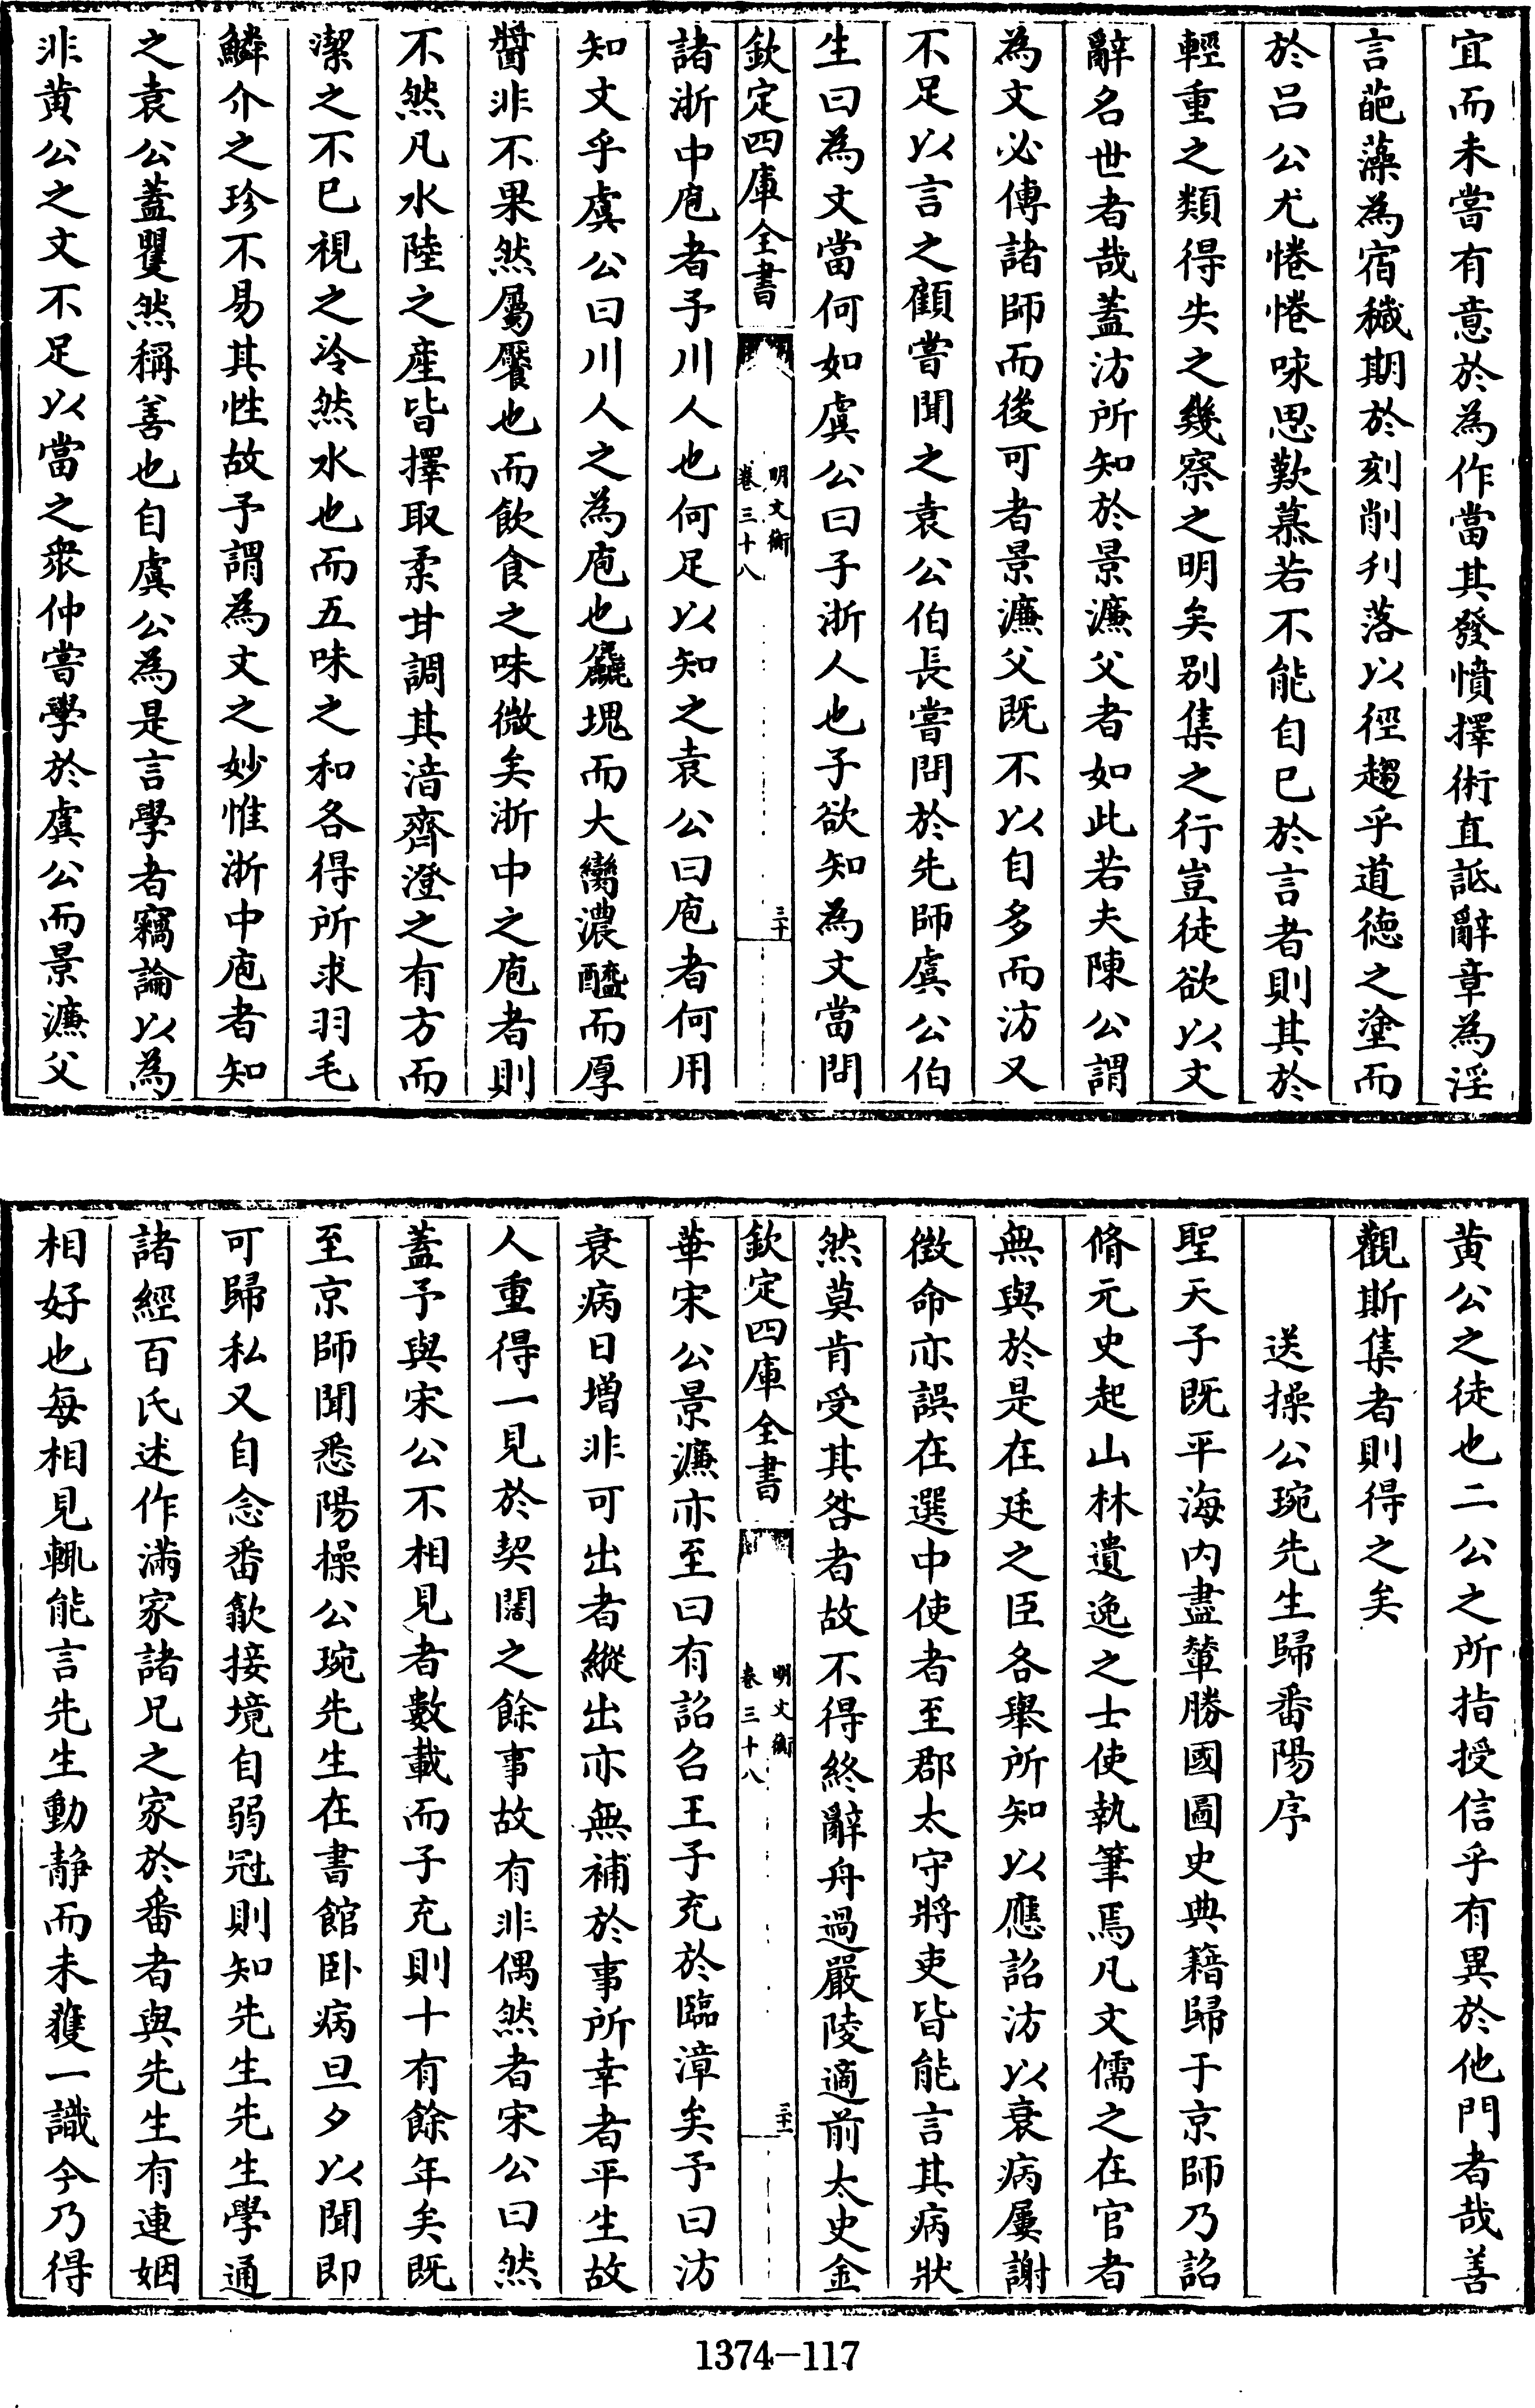 宜而未嘗有意於為作當其發憤擇術直詆辭章為淫
言葩藻為宿穢期於刻削刋落以徑趨乎道徳之塗而
於吕公尤惓惓咏思歎慕若不能自已於言者則其於
輕重之類得失之幾察之明矣别集之行豈徒欲以文
辭名世者哉蓋汸所知於景濓父者如此若夫陳公謂
為文必傳諸師而後可者景濓父既不以自多而汸又
不足以言之顧嘗聞之袁公伯長嘗問於先師虞公伯
生曰為文當何如虞公曰子浙人也子欲知為文當問
欽定四庫全書
明文衡
卷三十八
三十
諸浙中庖者予川人也何足以知之袁公曰庖者何用
知文乎虞公曰川人之為庖也麤塊而大臠濃醯而厚
醬非不果然屬饜也而飲食之味微矣浙中之庖者則
不然凡水陸之産皆擇取柔甘調其湆齊澄之有方而
潔之不已視之泠然水也而五味之和各得所求羽毛
鱗介之珍不易其性故予謂為文之妙惟浙中庖者知
之袁公蓋矍然稱善也自虞公為是言學者竊論以為
非黄公之文不足以當之衆仲嘗學於虞公而景濓父
黄公之徒也二公之所指授信乎有異於他門者哉善
觀斯集者則得之矣
送操公琬先生歸番陽序
聖天子既平海内盡輦勝國圖史典籍歸于京師乃詔
脩元史起山林遺逸之士使執筆焉凡文儒之在官者
無與於是在廷之臣各舉所知以應詔汸以衰病屢謝
徴命亦誤在選中使者至郡太守將吏皆能言其病狀
然莫肯受其咎者故不得終辭舟過嚴陵適前太史金
欽定四庫全書
明文衡
卷三十八
三十一
華宋公景濓亦至曰有詔召王子充於臨漳矣予曰汸
衰病日増非可出者縱出亦無補於事所幸者平生故
人重得一見於契闊之餘事故有非偶然者宋公曰然
蓋予與宋公不相見者數載而子充則十有餘年矣既
至京師聞悉陽操公琬先生在書館卧病旦夕以聞即
可歸私又自念番歙接境自弱冠則知先生先生學通
諸經百氏述作滿家諸兄之家於番者與先生有連姻
相好也每相見輒能言先生動静而未獲一識今乃得
1374-117